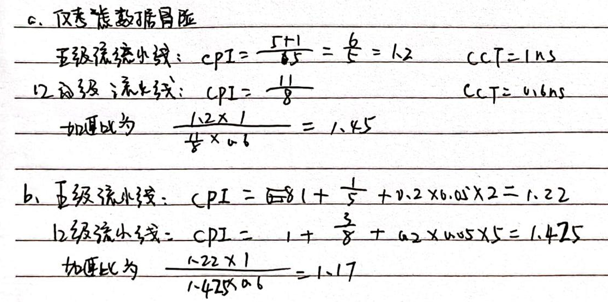 a. 仅考虑数据冒险
五级流水线: CPI = (5+1)/5 = 6/5 = 1.2 CCT = 1ns
12级流水线: CPI = 11/8 CCT = 0.6ns
加速比为 (1.2×1)/(11/8×0.6) = 1.45
b. 五级流水线: CPI = 1 + 1/5 + 0.2×0.05×2 = 1.22
12级流水线: CPI = 1 + 3/8 + 0.2×0.05×5 = 1.425
加速比为 (1.22×1)/(1.425×0.6) = 1.17